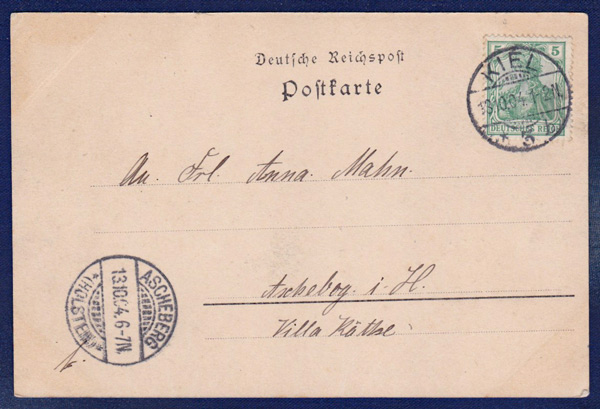 Deutsche Reichspost
Postkarte
5 5
DEUTSCHES REICH
KIEL
13.10.04. 1-2N.
* 5 c
An. Frl. Anna. Mahn.
Ascheberg i. H.
Villa Käthe
ASCHEBERG
13.10.04. 6-7N.
*(HOLSTEIN)*